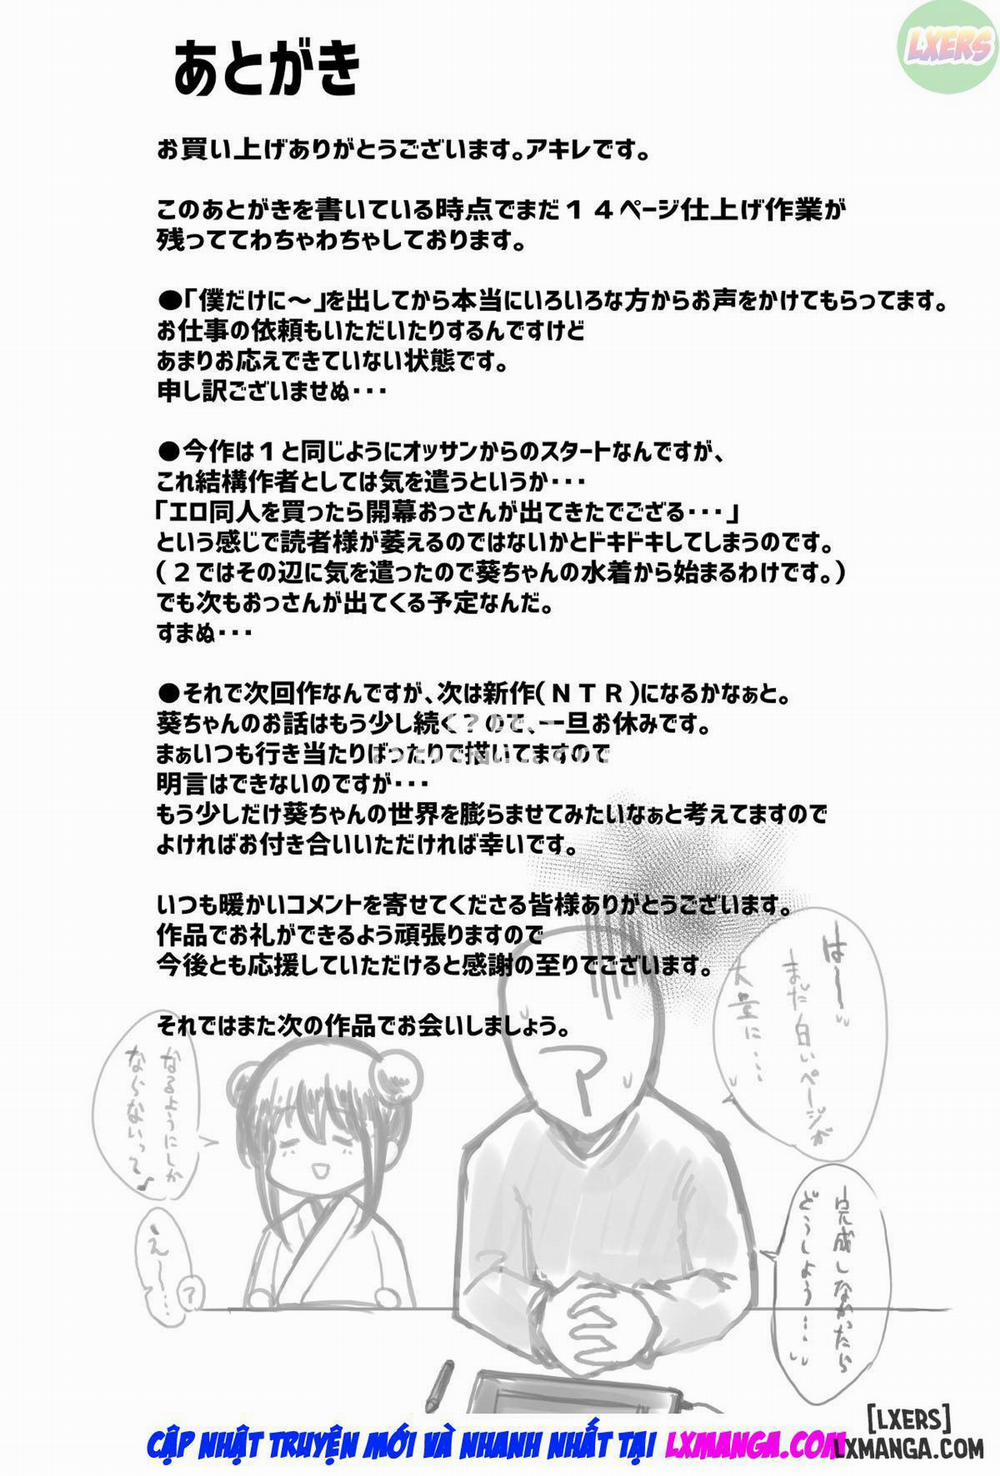 LXERS
あとがき
お買い上げありがとうございます。アキレです。
このあとがきを書いている時点でまだ１４ページ仕上げ作業が
残っててわちゃわちゃしております。
●「僕だけに～」を出してから本当にいろいろな方からお声をかけてもらってます。
お仕事の依頼もいただいたりするんですけど
あまりお応えできていない状態です。
申し訳ございませぬ・・・
●今作は１と同じようにオッサンからのスタートなんですが、
これ結構作者としては気を遣うというか・・・
「エロ同人を買ったら開幕おっさんが出てきたでござる・・・」
という感じで読者様が萎えるのではないかとドキドキしてしまうのです。
（２ではその辺に気を遣ったので葵ちゃんの水着から始まるわけです。）
でも次もおっさんが出てくる予定なんだ。
すまぬ・・・
●それで次回作なんですが、次は新作（ＮＴＲ）になるかなぁと。
葵ちゃんのお話はもう少し続く？ので、一旦お休みです。
まぁいつも行き当たりばったりで描いてますので
明言はできないのですが・・・
もう少しだけ葵ちゃんの世界を膨らませてみたいなぁと考えてますので
よければお付き合いいただければ幸いです。
いつも暖かいコメントを寄せてくださる皆様ありがとうございます。
作品でお礼ができるよう頑張りますので
今後とも応援していただけると感謝の至りでございます。
それではまた次の作品でお会いしましょう。
はー〜
まだ白いページが
大量に…
ア
なるようにしか
ならないって♪
え〜…
？
完成しなかったら
どうしよう…
CẬP NHẬT TRUYỆN MỚI VÀ NHANH NHẤT TẠI LXMANGA.COM
[LXERS]
LXMANGA.COM